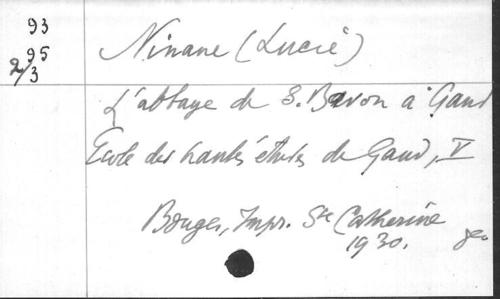 93
95
2/3
Ninane (Lucie)
L'abbaye de S. Bavon à Gand
Ecole des hautes études de Gand, V
Bruges, Impr. Ste Catherine
1930.